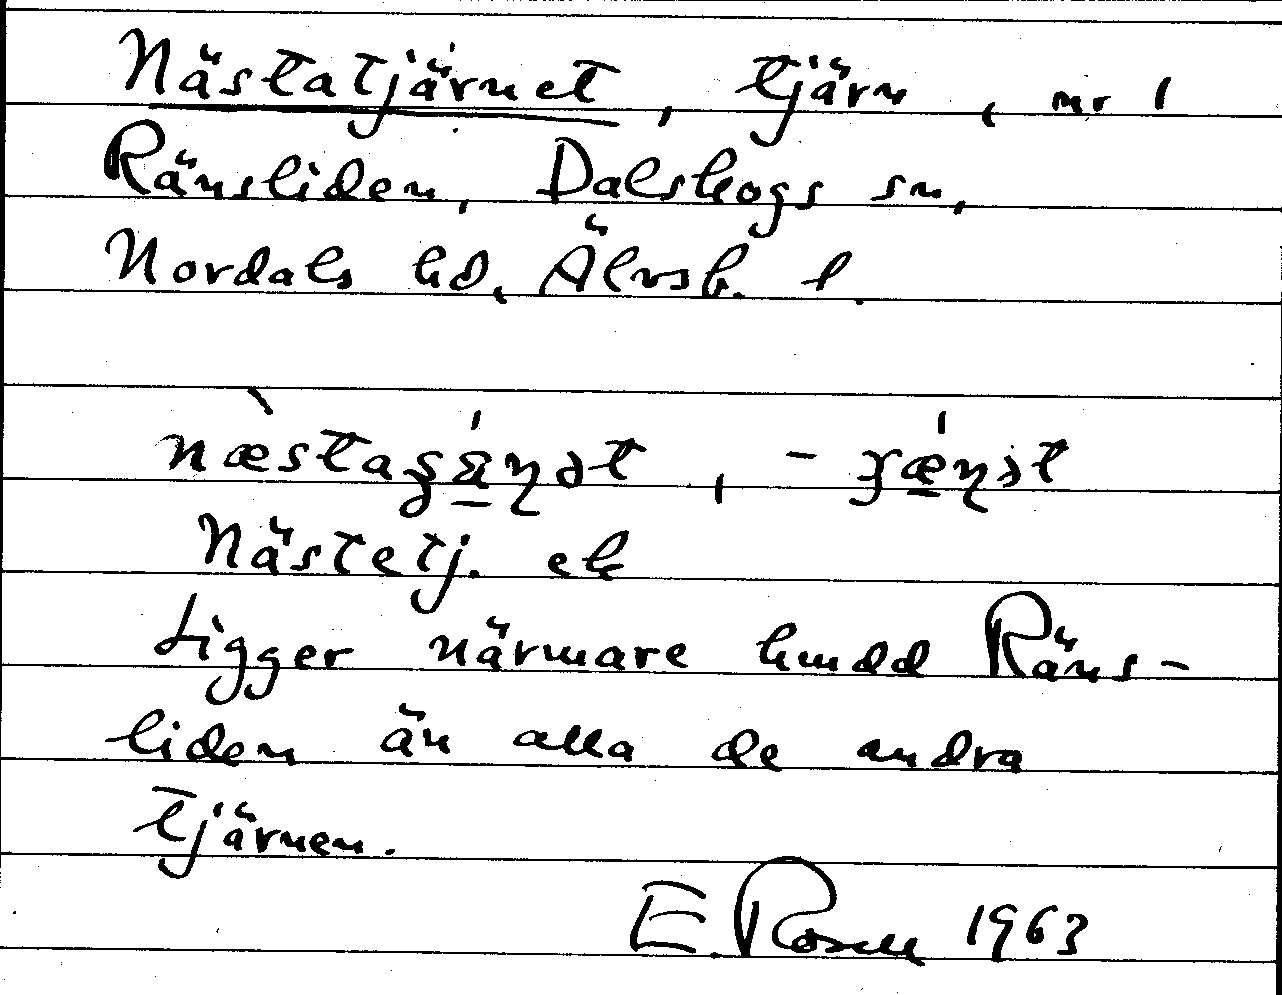 Nästatjärnet, tjärn, nr 1
Ränsliden, Dalskogs sn,
Nordals hd, Älvsb. l.
næ̀staʂä́ɳət, -ʂǽɳət
Nästetj. ek
Ligger närmare hmdd Räns-
liden än alla de andra
tjärnen.
E. Rosell 1963